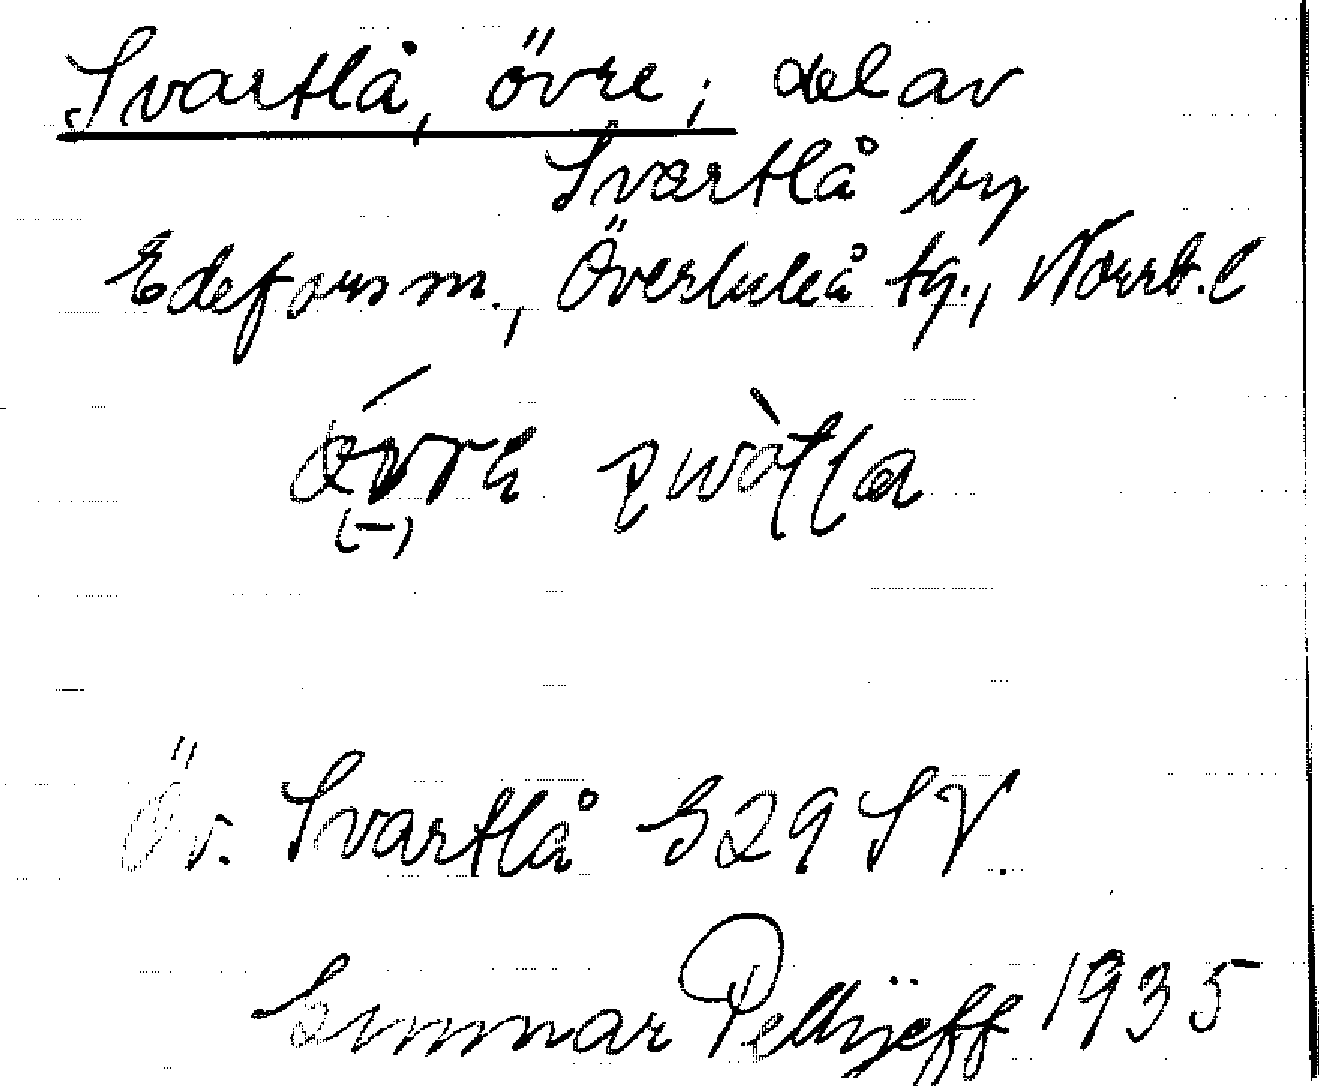 Svartlå, övre; del av
Svartlå by
Edefors sn., Överluleå tg., Norrb. l
Öv. Svartlå G29 SV.
Gunnar Pellijeff 1935